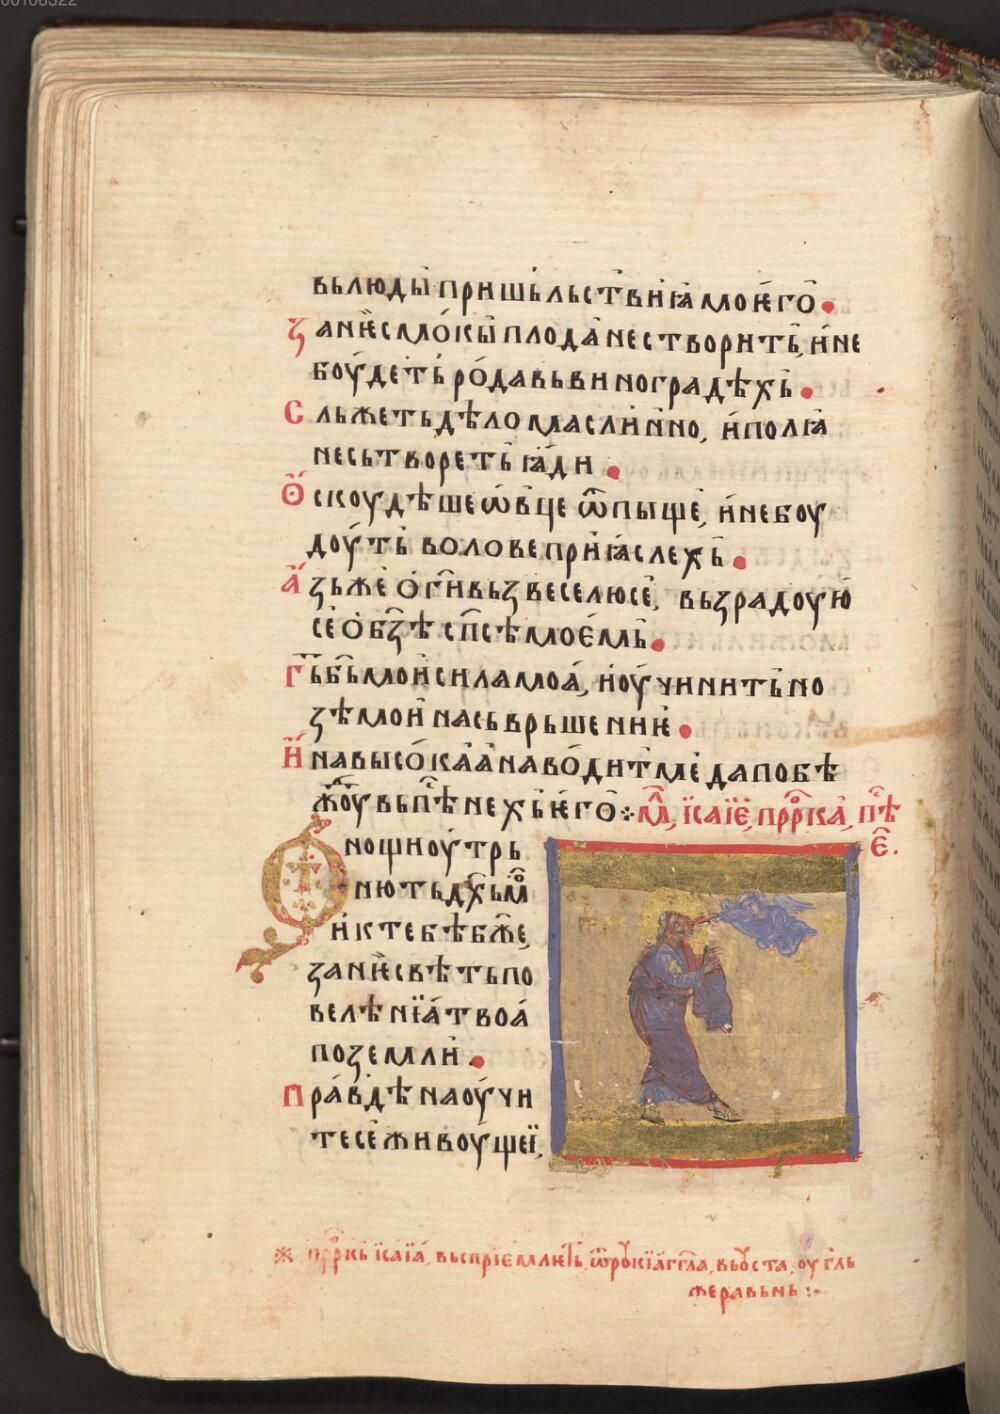 00106322
вьлюды пришьльствиꙗ моѥго
Занѥ смокы плода не створить, и не
боудеть рода вь виноградѣхь
Сльжеть дѣло маслинно, и полꙗ
несьтвореть ꙗди
Ѻскоудѣше ѡвце ѿ пыще, и не боу
доуть волове при ꙗслехь
Азь же ѡ г҃и вьзвеселюсе, вьзрадоую
се о бз҃ѣ сп҃сѣ моемь
Г҃ь б҃ь мои сила моа, и оучинить но
зѣ мои на сьврьшениѥ
И на высокаа наводит ме да побѣ
жоу вь пѣснехь ѥго ⁘ Мл, Исаїе, пррⷪка, пⷭѣ
е҃.
Ѿ нощи оутрь
нюѥть дх҃ь мⷪ
и к тебѣ бж҃е,
занѥ свѣть по
велѣнїа твоа
по земли
Правдѣ наоучи
те се живоущеї,
※ пррⷪкь Исаїа, вьспрїемлѥть, ѿ роукї аг҃гла, вь оуста, оугль
жеравьнь :~